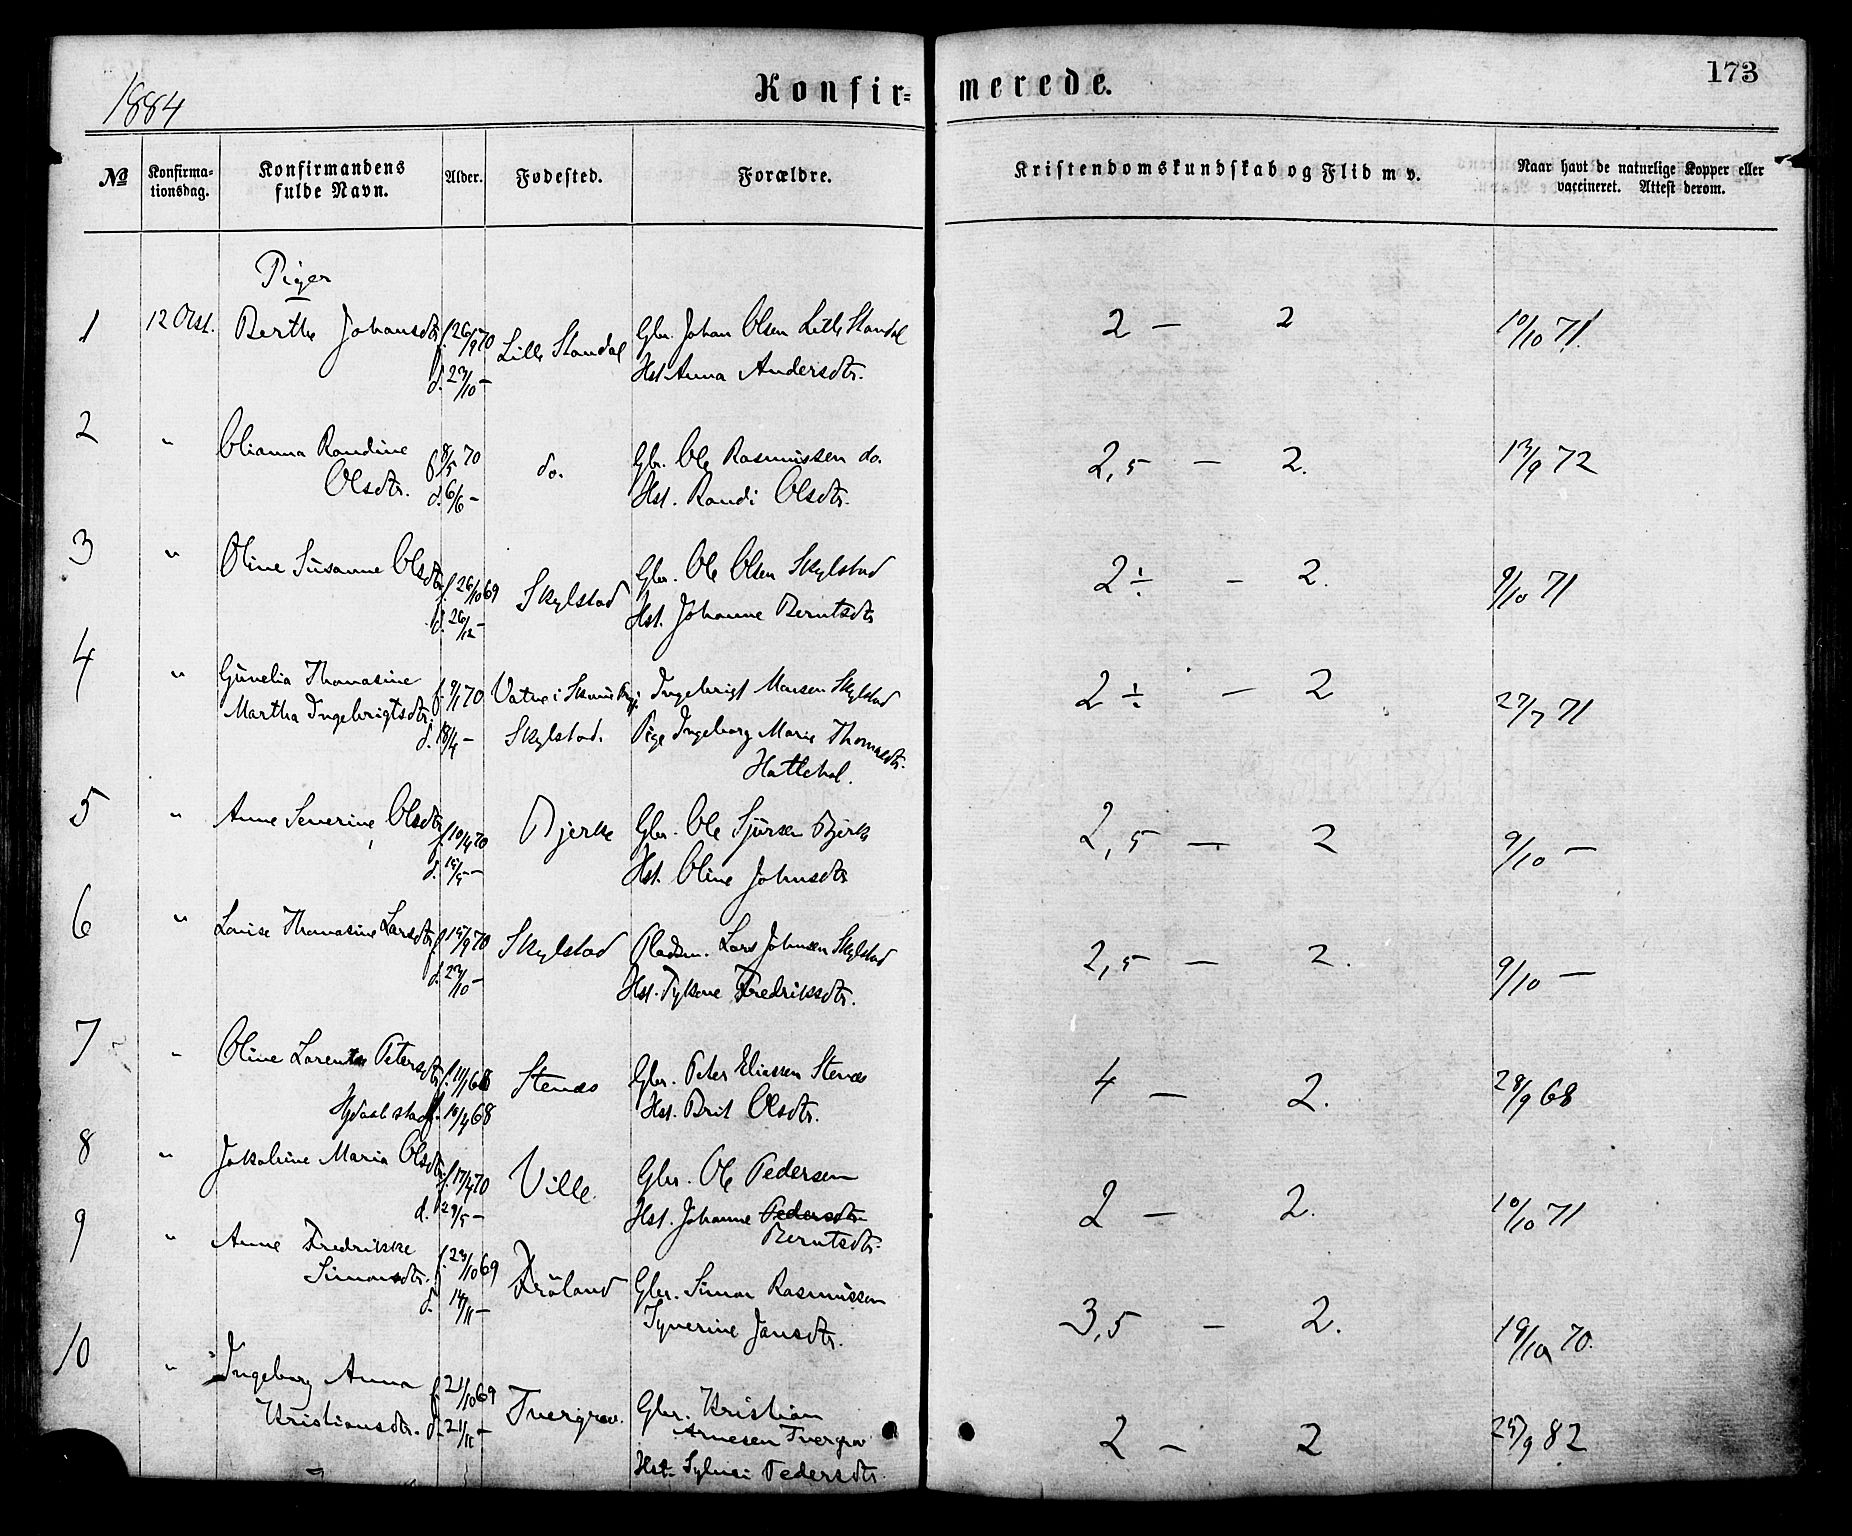 1884
Konfirmerede.
173
№
Konfirmationsdag.
Konfirmandens fulde Navn.
Alder.
Fødested.
Forældre.
Kristendomskundskab og Flid m v.
Naar havt de naturlige Kopper eller vaccineret. Attest derom.
Piger
1 12 Okt. Berthe Johansdtr f. 26/9 70 Lille Standal Gbr. Johan Olsen Lille Standal 2 — 2 10/10 71
d. 23/10 – Hst Anna Andersdtr.
2 " Olianna Randine f. 8/5 70 do. Gbr. Ole Rasmussen do. 2,5 — 2. 13/9 72
Olsdtr. d. 6/6 – Hst. Randi Olsdtr.
3 " Oline Susanne Olsdtr f. 26/10 69 Skylstad Gbr. Ole Olsen Skylstad 2 ÷ – 2. 9/10 71
d. 26/12 – Hst. Johanne Berntsdtr
4 " Gunelia Thomasine f. 9/1 70 Vatne i Ingebrigt Monsen Skylstad 2 ÷ – 2 27/7 71
Martha Ingebrigtsdtr. d. 18/4 – Skylstad. Pige Ingeborg Marie Thomasdtr.
Hatlehol.
5 " Anne Severine Olsdtr f. 10/4 70 Bjerke Gbr. Ole Sjursen Bjerk 2,5 — 2 9/10 —
d. 15/5 – Hst. Oline Johnsdtr
6 " Lovise Thomasine Larsdtr f. 15/9 70 Skylstad Pladsm. Lars Johnsen Skylstad 2,5 — 2. 9/10 —
d. 23/10 – Hst. Fredriksdtr.
7 " Oline Petersdtr f. 11/1 68 Stenæs Gbr. Peter Eliassen Stenæs 4 — 2. 28/9 68
d. 10/4 68 Hst. Brit Olsdtr.
8 " Jakobine Maria Olsdtr f. 17/4 70 Ville. Gbr. Ole Pedersen 2 — 2. 10/10 71
d. 29/5 – Hst. Johanne Pedersdtr
Berntsdtr.
9 " Anne Fredrikke f. 23/10 69 Fröland Gbr. Simon Rasmussen 3,5 – 2. 19/10 70.
Simonsdtr. d. 14/11 – Synerine Jansdtr.
10 " Ingeborg Anna f. 21/10 69 Tvergrov. Gbr. Kristian 2 – 2 25/9 82
Kristiansdtr. d. 21/11 – Arnesen Tvergrov
Hst. Sylvei Pedersdtr.